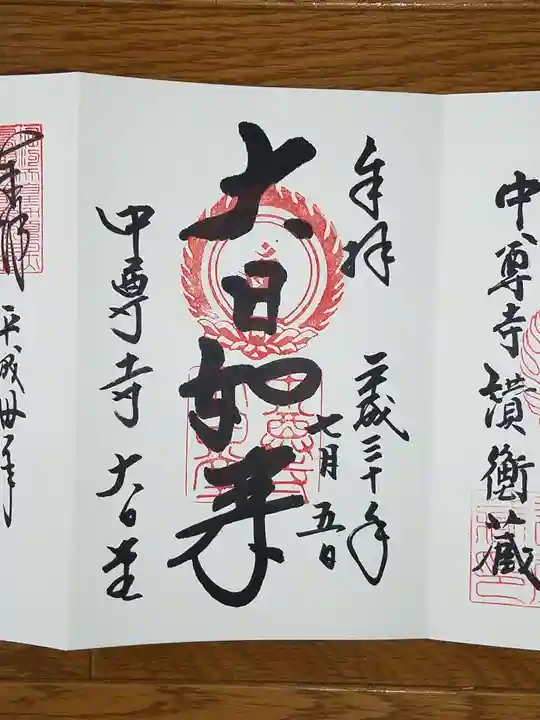 中尊寺 讃衡蔵
奉拝 平成三十年
七月 五日
大日如来
中尊寺 大日堂
奉拝 平成卅年